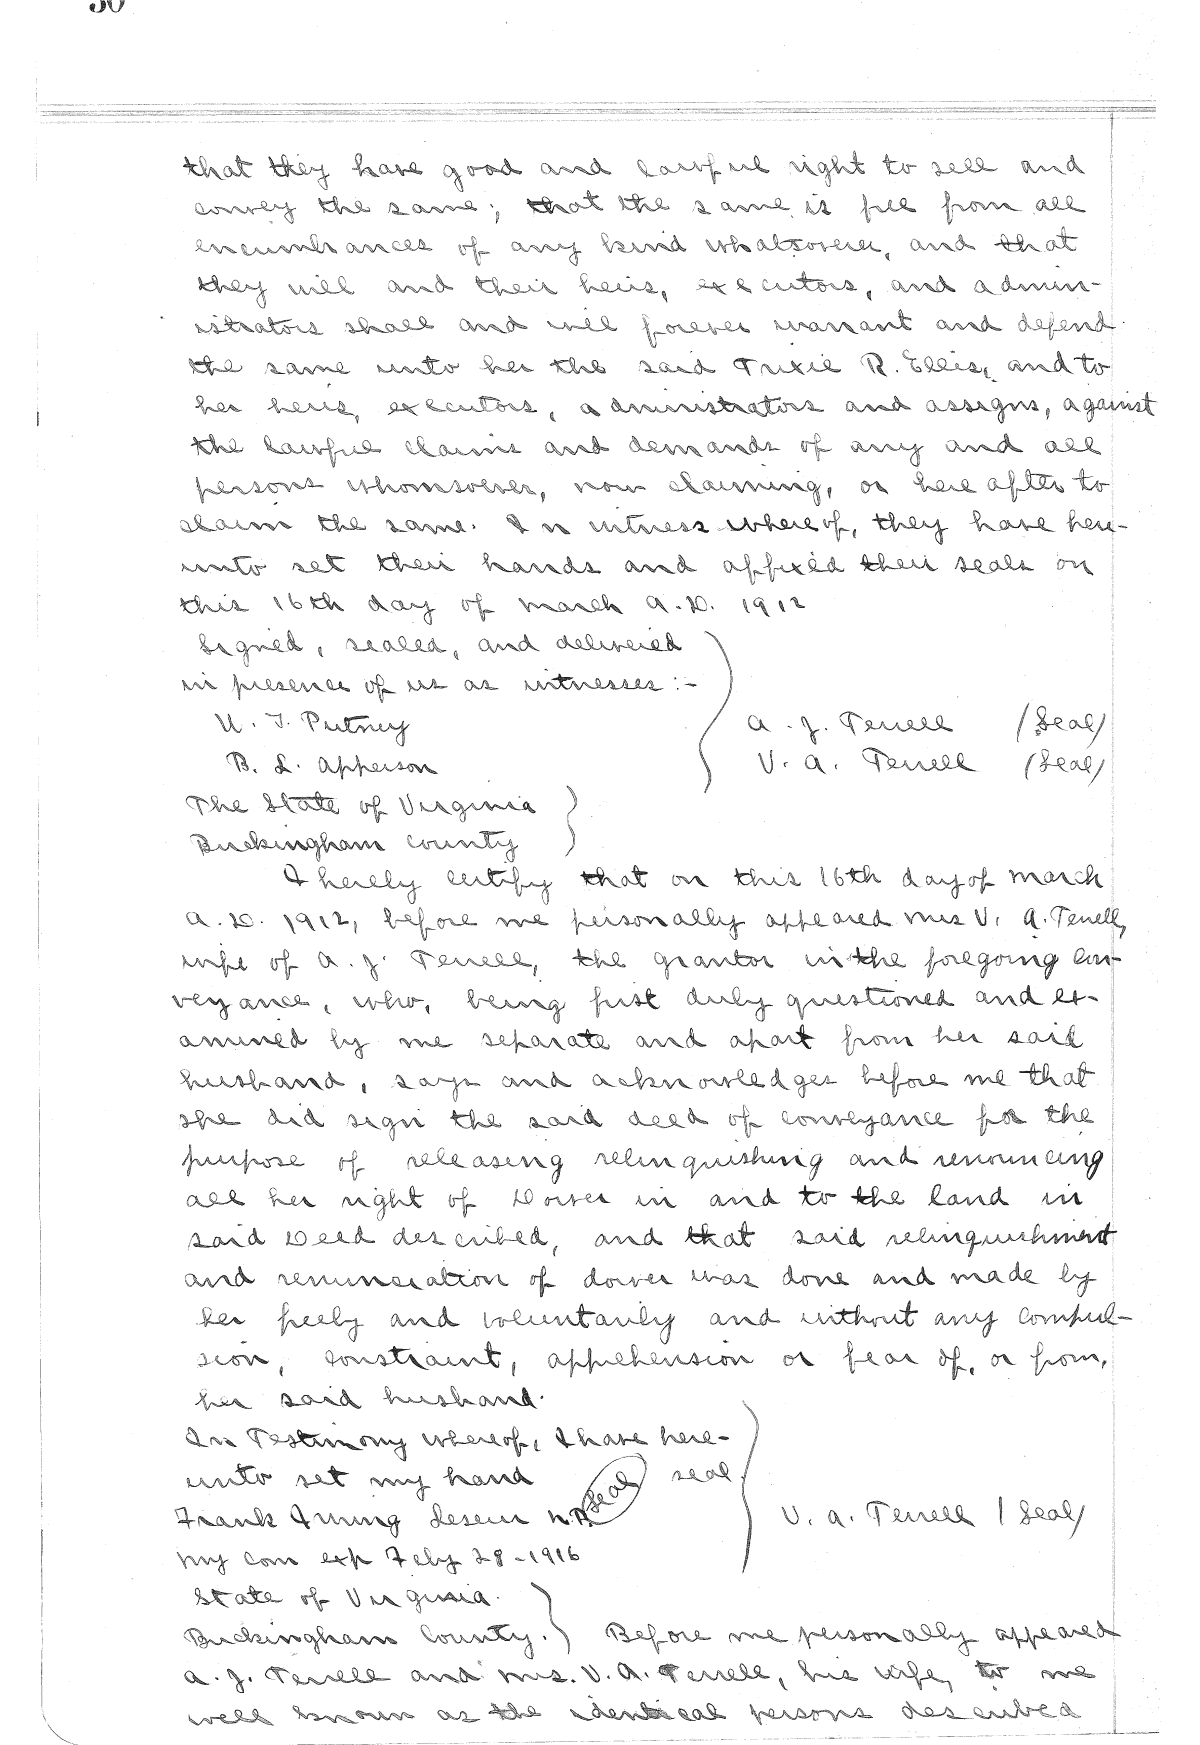 50
that they have good and lawful right to sell and
convey the same; that the same is free from all
encumbrances of any kind whatsoever, and that
they will and their heirs, executors, and admin-
istrators shall and will forever warrant and defend
the same unto her the said Trixie R. Ellis, and to
her heirs, executors, administrators and assigns, against
the lawful claims and demands of any and all
persons whomsoever, now claiming, or here after to
claim the same. In witness whereof, they have here-
unto set their hands and affixed their seals on
this 16th day of March A.D. 1912
Signed, sealed, and delivered
in presence of us as witnesses:-
W. T. Putney A. J. Terrell (Seal)
B. L. Apperson V. A. Terrell (Seal)
The State of Virginia
Buckingham County
I hereby certify that on this 16th day of March
A.D. 1912, before me personally appeared Mrs V. A. Terrell,
wife of A. J. Terrell, the grantor in the foregoing con-
veyance, who, being first duly questioned and ex-
amined by me separate and apart from her said
husband, says and acknowledges before me that
she did sign the said deed of conveyance for the
purpose of releasing relinquishing and renouncing
all her right of Dower in and to the land in
said Deed described, and that said relinquishment
and renunciation of dower was done and made by
her freely and voluntarily and without any compul-
sion, constraint, apprehension or fear of, or from,
her said husband.
In Testimony whereof, I have here-
unto set my hand Seal seal
Frank Irving Leseur N.P. V. A. Terrell (Seal)
My com exp Feby 28-1916
State of Virginia.
Buckingham County. Before me personally appeared
A. J. Terrell and Mrs. V. A. Terrell, his wife, to me
well known as the identical persons described